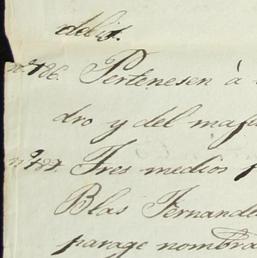 del d.
nº 186. Pertenesen à
dro y del
nº 187. Tres medios
Blas Fernande
parage nombra